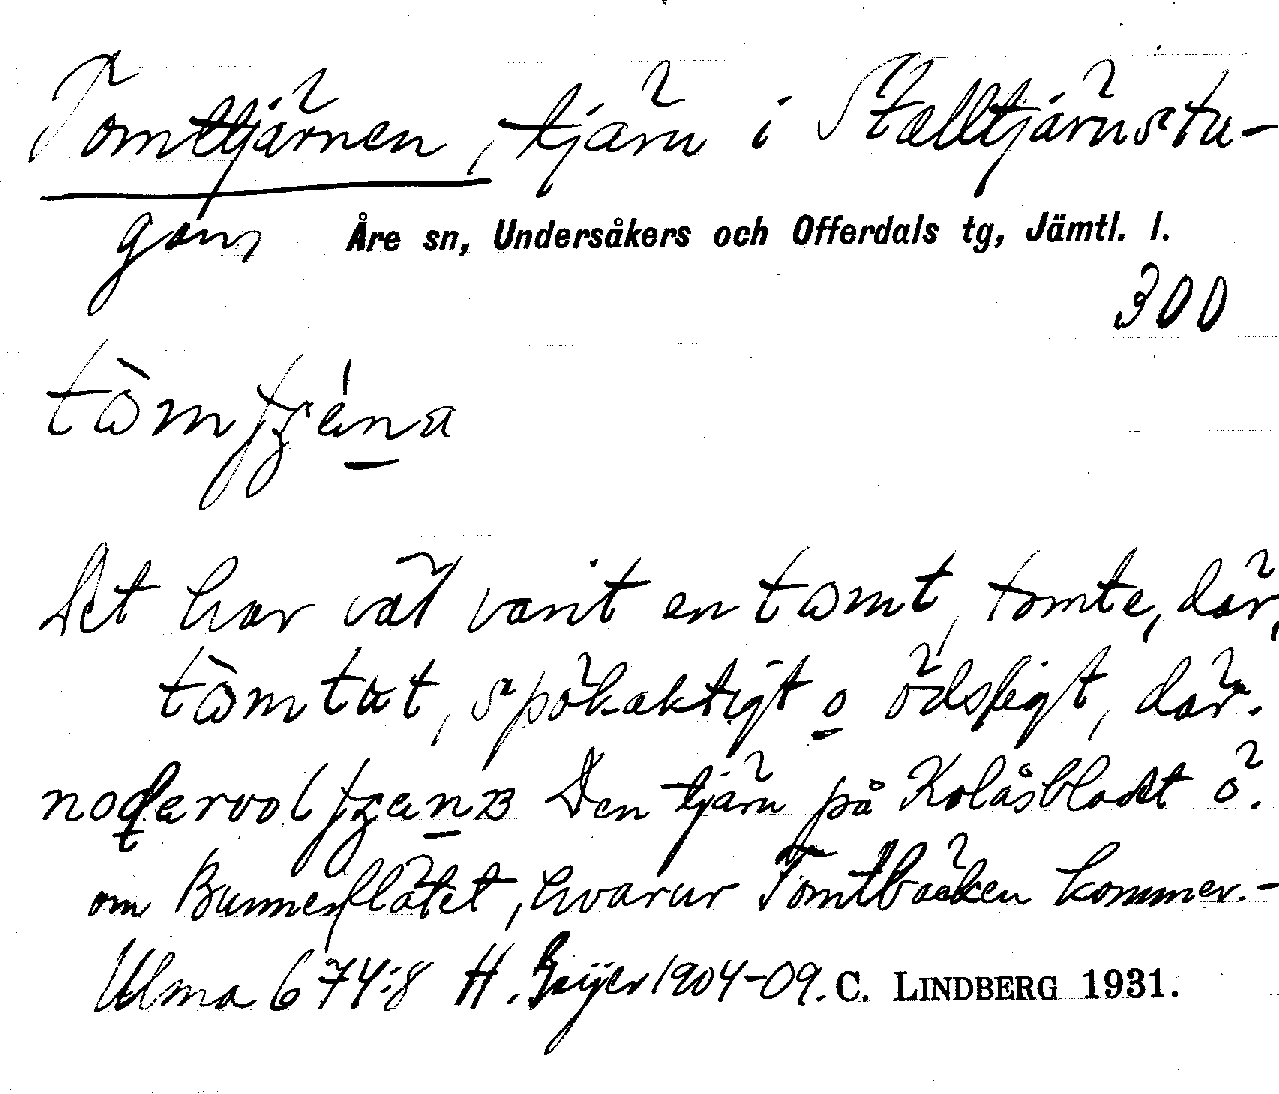 Tomttjärnen, tjärn i Stalltjärnstu-
gan, Åre sn, Undersåkers och Offerdals tg, Jämtl. l.
300
Det har väl varit en tomt, tomte, där,
tòmtut, spökaktigt o ödsligt, där.
Den tjärn på Kolåsbladet ö.
om Bunnerflätet, hvarur Tomtbäcken kommer.-
Ulma 674:8 H. Geijer 1904-09. C. LINDBERG 1931.